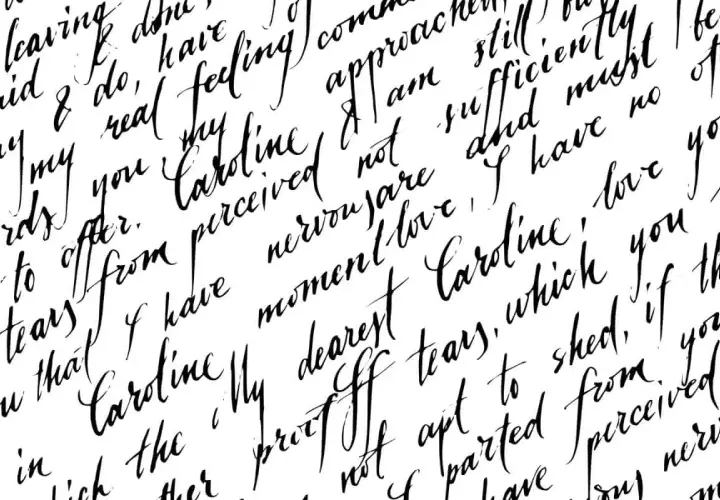 leaving
aid & done,
& do, have
my real feeling comm
rds you, my approached,
to offer. Caroline & am still
tears from perceived not sufficiently
u that I have nervous are and must be
in Caroline moment love, I have no of
My dearest Caroline, love yo
which the proof tears, which you
ther not apt to shed, if th
I parted from you
I have perceived
ous nerv